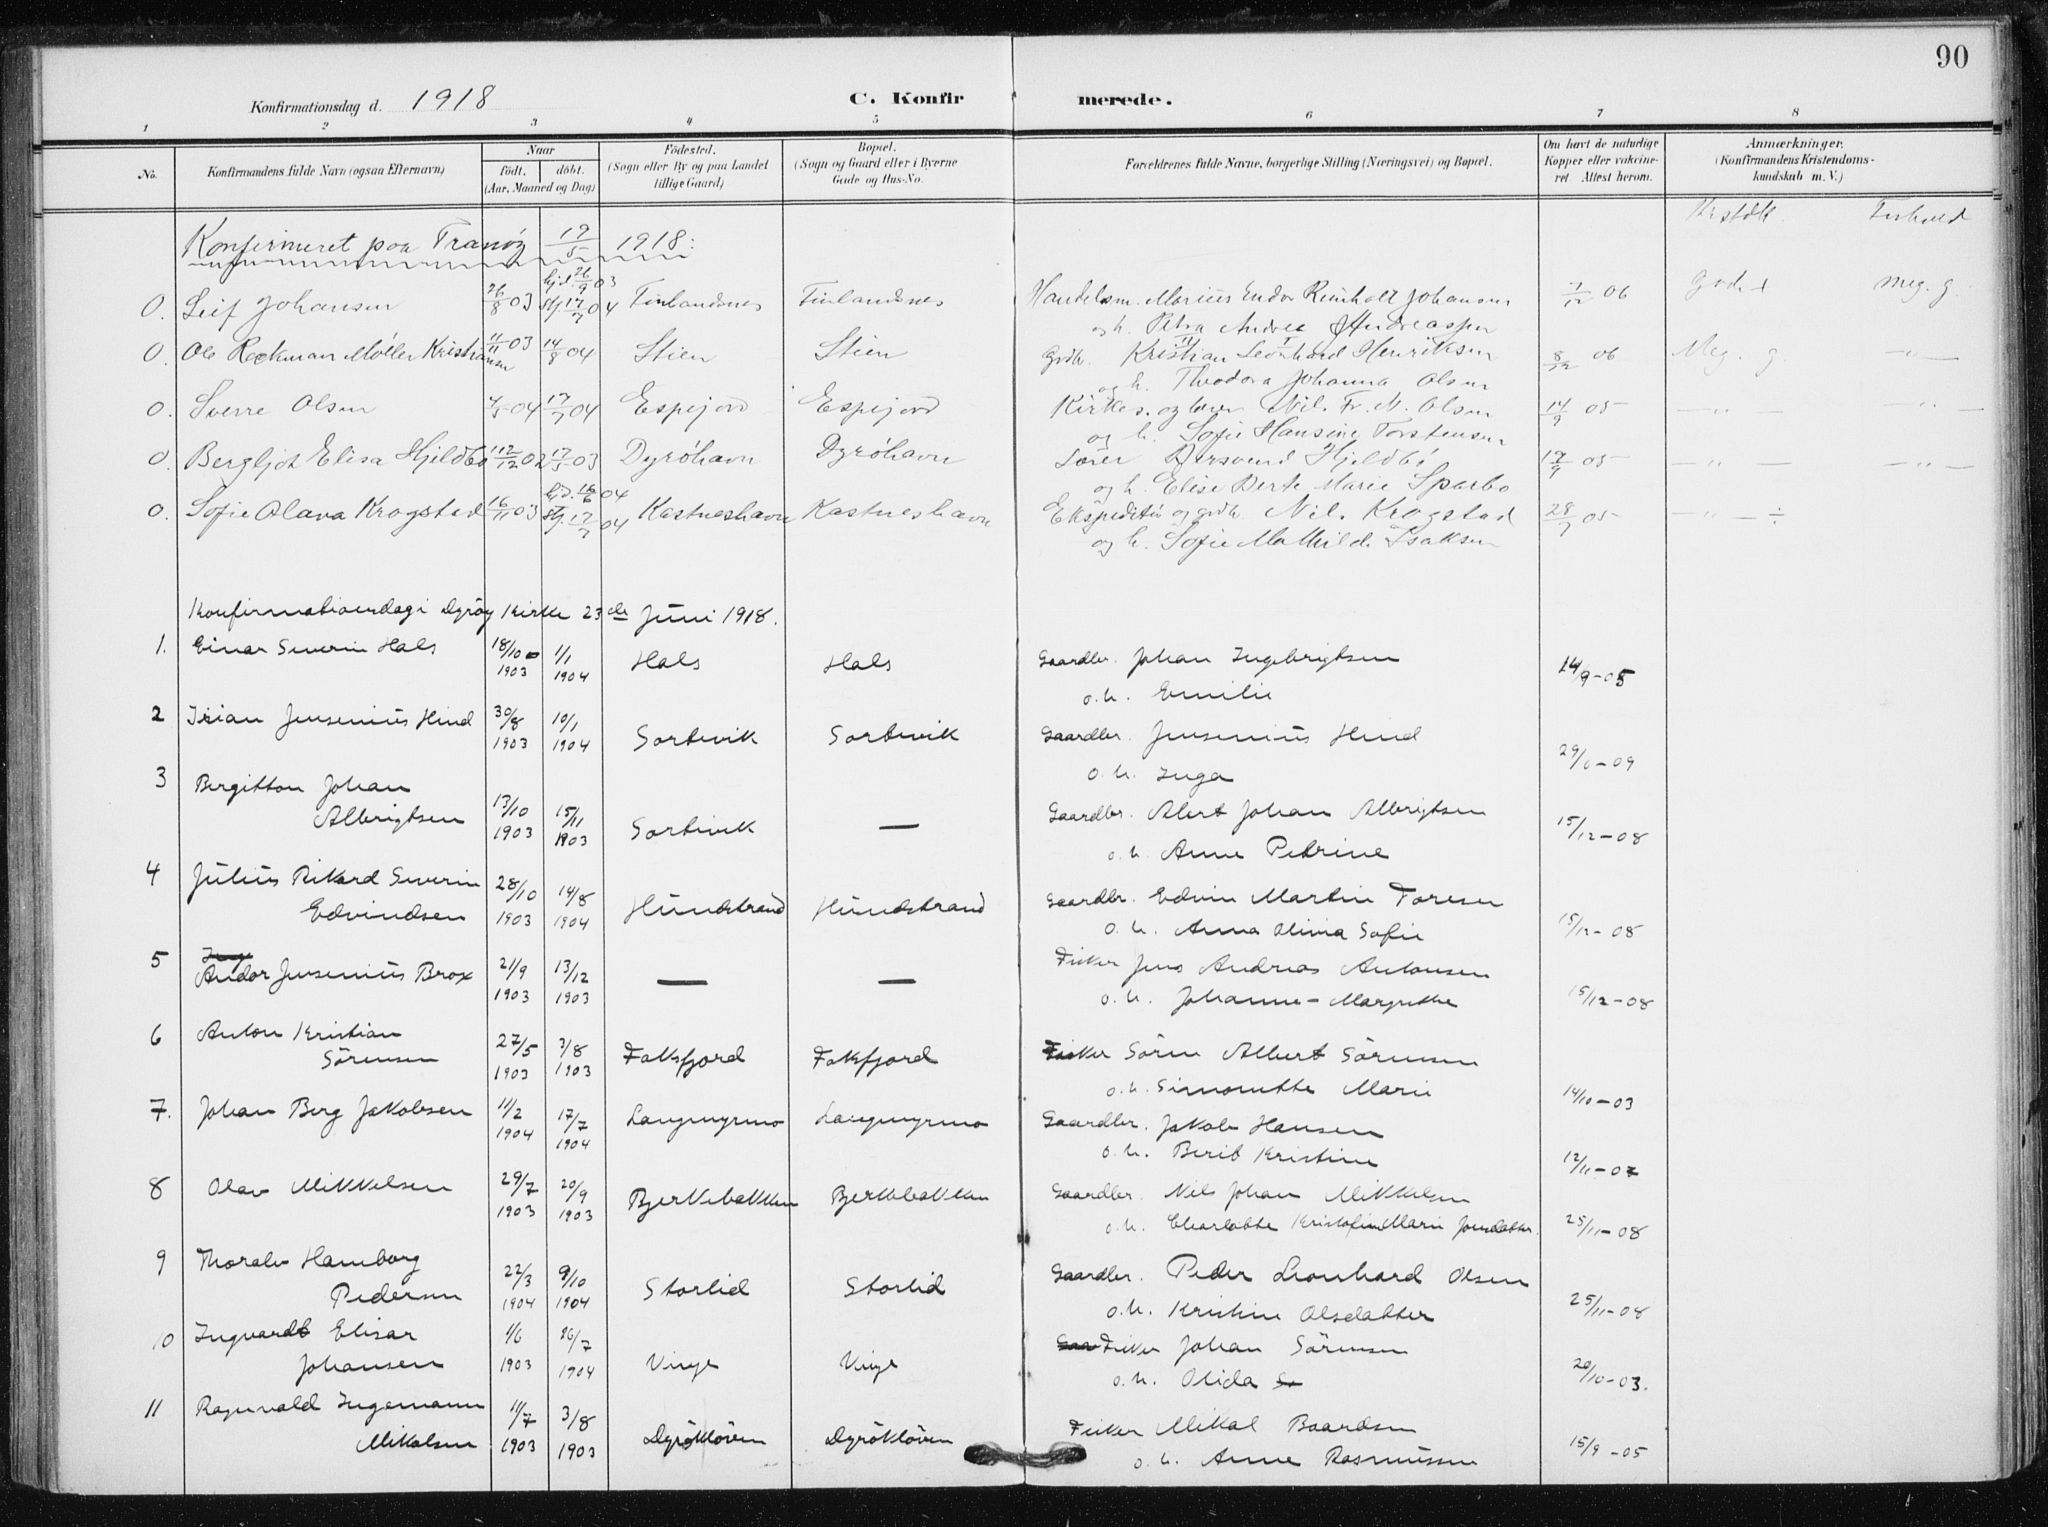 90
Konfirmationsdag d. 1918 C. Konfirmerede.
1 2 3 4 5 6 7 8
No. Konfirmandens fulde Navn (ogsaa Efternavn) Naar födt. döbt. (Aar, Maaned og Dag) Födested. (Sogn eller By og paa Landet tillige Gaard) Bopæl. (Sogn og Gaard eller i Byerne Gade og Hus-No. Forældrenes fulde Navne, borgerlige Stilling (Næringsvei) og Bopæl. Om havt de naturlige Kopper eller vakcineret Attest herom. Anmærkninger. (Konfirmandens Kristendomskundskab m. V.)
Forhold
Konfirmeret paa Tranöy 19/5 1918:
hjd. 26/9 03
0. Leif Johansen 26/8 03 Stf. 17/7 04 Finlandsnes Finlandsnes Handelsm. Marius Endor Reinholt Johansen 7/12 06 God Meg. g.
og h. Petra Andrea Andreassen
0. Ole Rockman Möller Kristiansen 11/11 03 14/8 04 Stien Stien Grdb. Kristian Leonhard Henriksen 8/12 06 Meg. g — " —
og h. Theodora Johanna Olsen
0. Sverre Olsen 4/5 04 17/7 04 Espejord Espejord Kirkes. og lærer Nil. Fr. N. Olsen 14/9 05 — " — — " —
og h. Sofie Hansine Torstensen
0. Bergljot Elisa Hjeldbo 12/12 02 17/5 03 Dyröhavn Dyröhavn Lærer Hjeldbö 17/9 05 — " — — " —
og h. Elise Berte Marie Sparbo
hjd. 16/6 04
0. Sofie Olava Krogstad 16/11 03 Stf. 17/7 04 Kastneshavn Kastneshavn Ekspeditör og grdb. Nil. Krogstad 28/7 05 — " — ÷
og h. Sofie Mathilde Isaksen
Konfirmationsdag i Dyröy Kirke 23de Juni 1918.
1. Einar Severin Hals 18/10 1903 1/1 1904 Hals Hals Gaardbr. Johan Ingebrigtsen 14/9-05
o.h. Emilie
2 Isian Jensenius Hind 30/8 1903 10/1 1904 Sortevik Sortevik Gaardbr. Jensenius Hind 29/6-09
o.h. Inga
3 Bergitton Johan
Albrigtsen 13/10 1903 15/11 1903 Sortevik — Gaardbr. Albert Johan Albrigtsen 15/12-08
o.h. Anne Petrine
4 Julius Rikard Severin
Edvindsen 28/10 1903 14/8 1904 Hundstrand Hundstrand Gaardbr. Edvin Martin Toresen 15/12-08
o.h. Anna Olivia Sofie
5 Andor Jensenius Brox 21/9 1903 13/12 1903 — — Fisker Jens Andreas Antonsen 15/12-08
o.h. Johanne-Margrethe
6 Anton Kristian
Sörensen 27/5 1903 3/8 1903 Faksfjord Faksfjord Fisker Sören Albert Sörensen 14/10-03
o.h. Simonette Marie
7. Johan Berg Jakobsen 11/2 1904 17/7 1904 Langmyrmo Langmyrmo Gaardbr. Jakob Hansen 12/11-07
o.h. Berit Kristine
8 Olav Mikkelsen 29/7 1903 20/9 1903 Bjerkebakken Bjerkebakken Gaardbr. Nils Johan Mikkelsen 25/11-08
o.h. Charlotte Kristofine Marie Jonsdatter.
9 Thoralv Hamborg
Pedersen 22/3 1904 9/10 1904 Storlid Storlid Gaardbr. Peder Leonhard Olsen 25/11-08
o.h. Kristine Olsdatter
10 Ingvardt Elisar
Johansen 1/6 1903 26/7 1904 Vinje Vinje Fisker Johan Sörensen 20/10-03.
o.h. Olida
11 Ragnvald Ingemann
Mikalsen 11/7 1903 3/8 1903 Dyröklöven Dyröklöven Fisker Mikal Baardsen 15/9-05
o.h. Anne Rasmussen